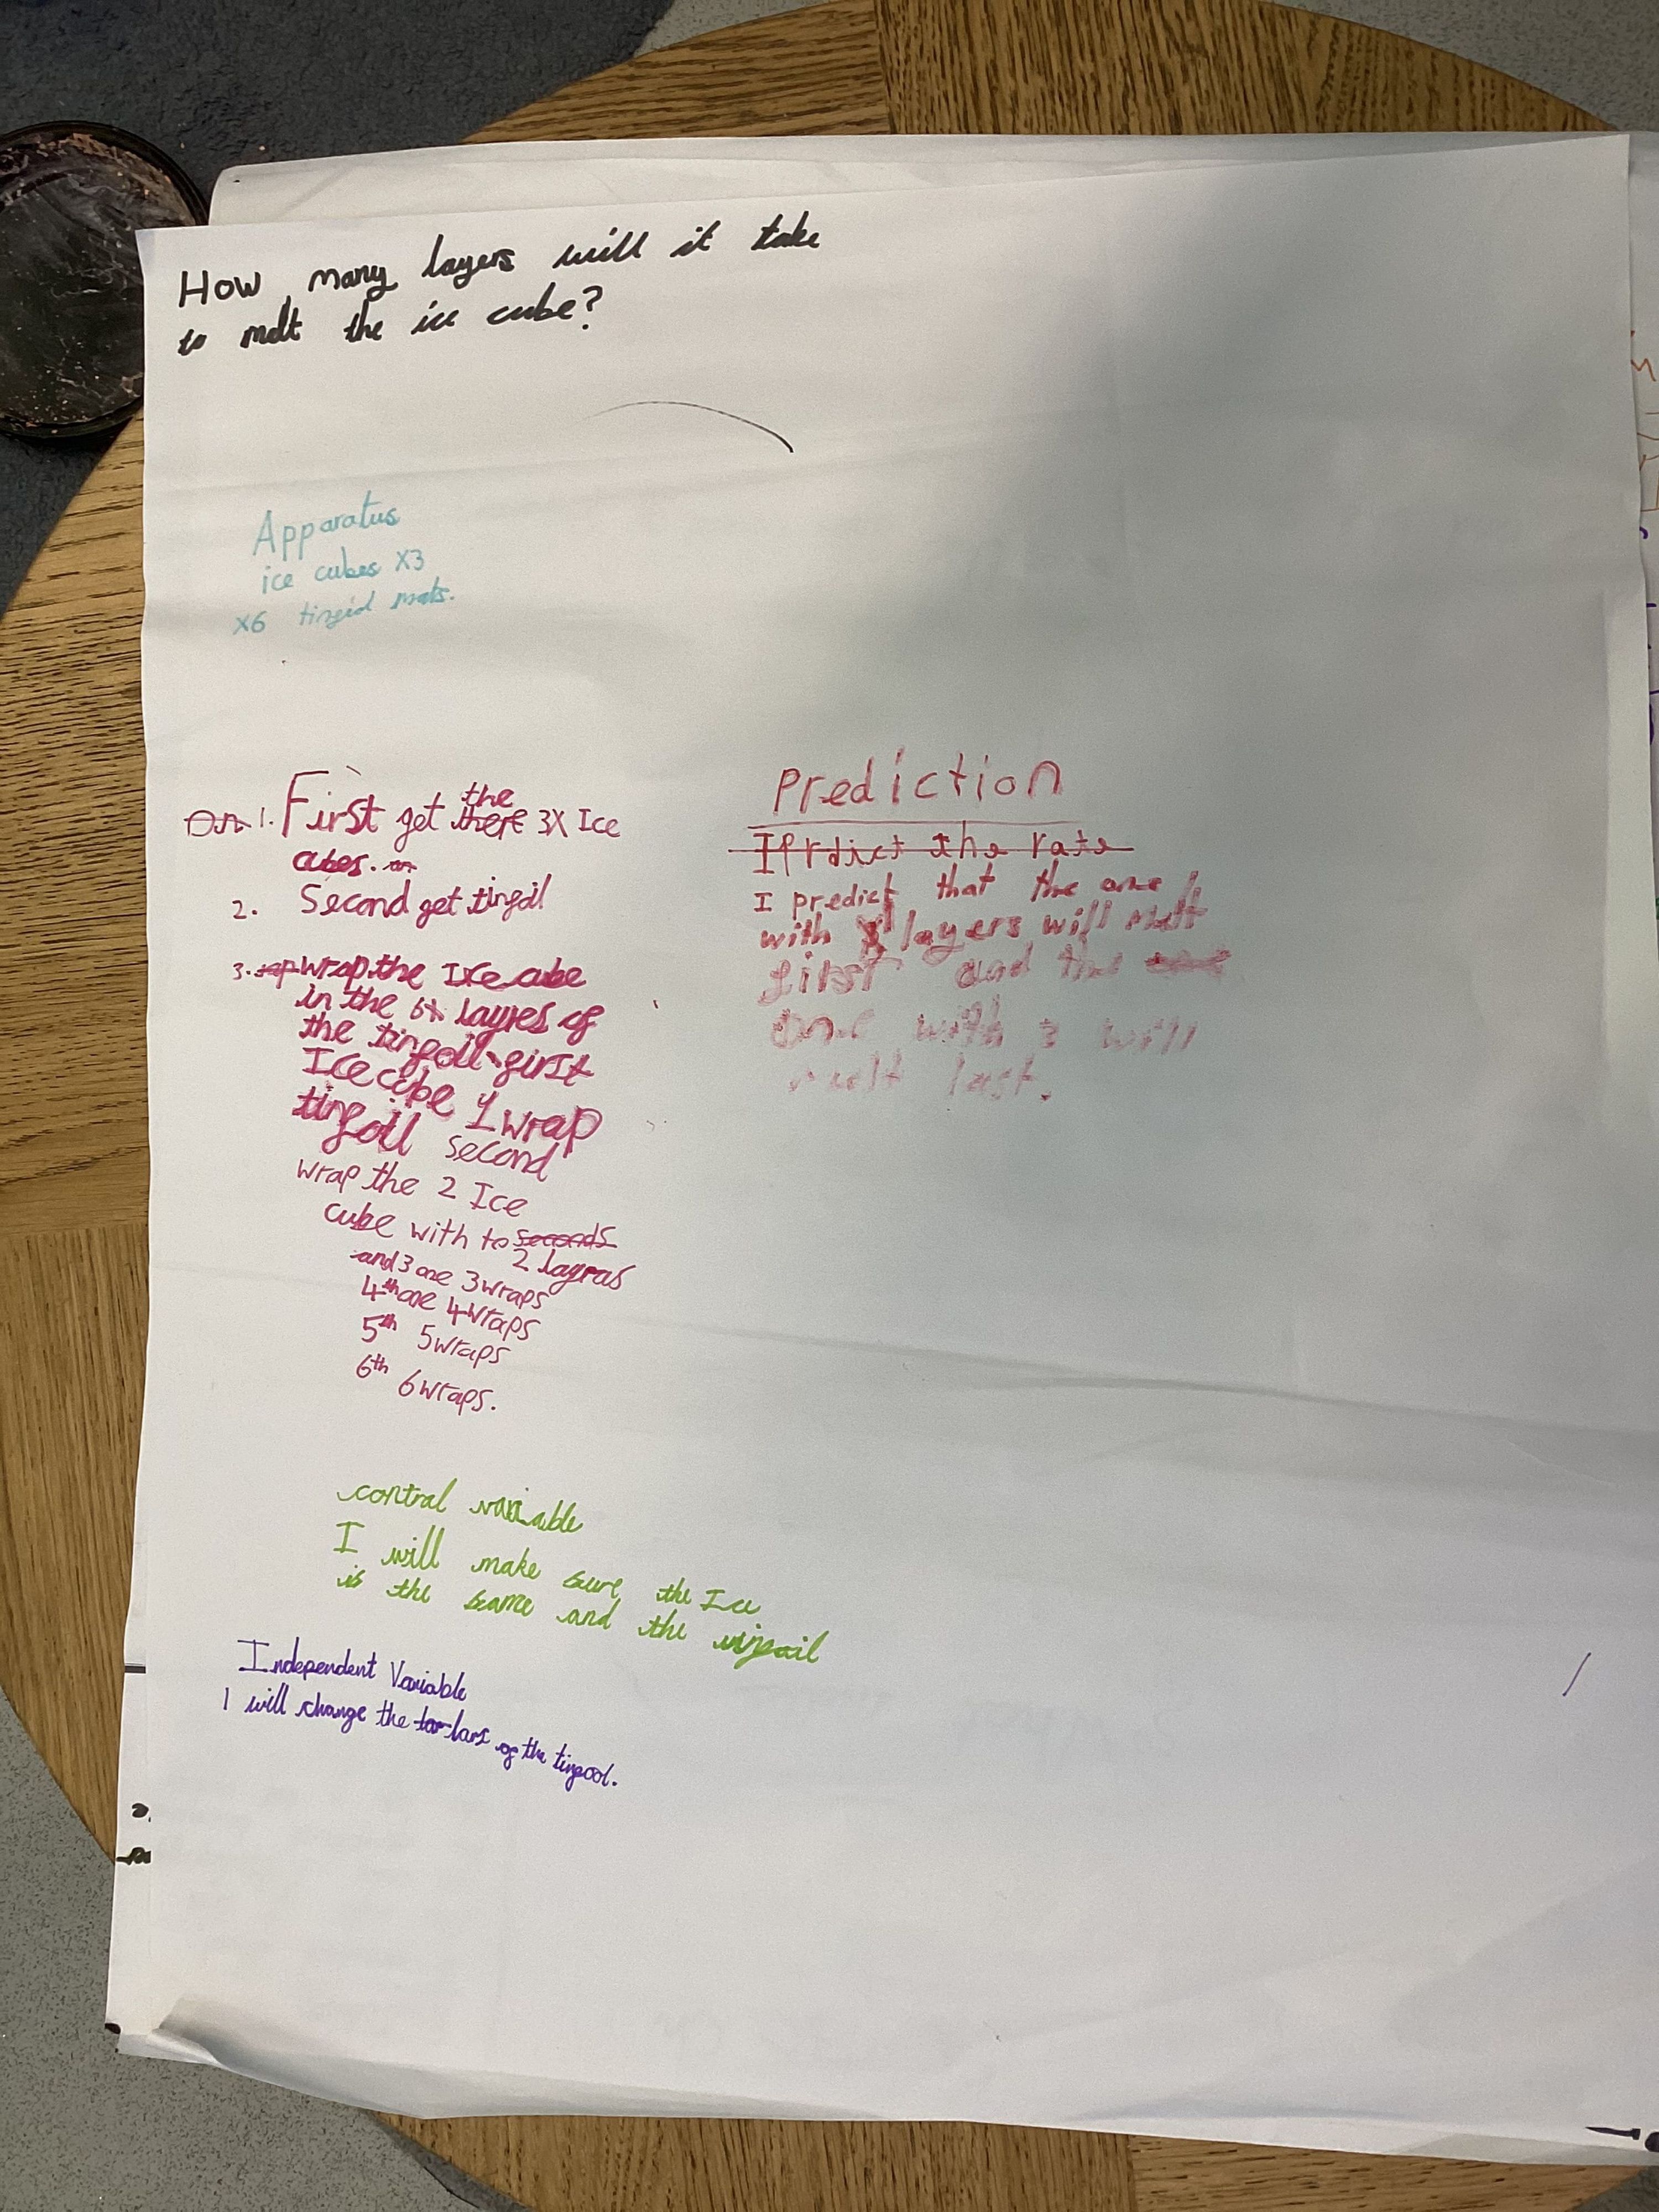 How many layers will it take
to melt the ice cube?
Apparatus
ice cubes X3
X6 tinfoil mats.
1. First get the there 3X Ice
cubes.
2. Second get tinfoil
3. wrap the Ice cube
in the 6x layres of
the tinfoil first
Ice cube 1 wrap
tinfoil second
wrap the 2 Ice
cube with to seconds
2 layras
and 3 one 3 wraps
4th one 4 wraps
5th 5 wraps
6th 6 wraps.
Prediction
I prdict the rate
I predict that the one
with layers will melt
first and the
one with 3 will
melt last.
control variable
I will make sure the Ice
is the same and the
Independent Variable
I will change the lars of the tinfool.